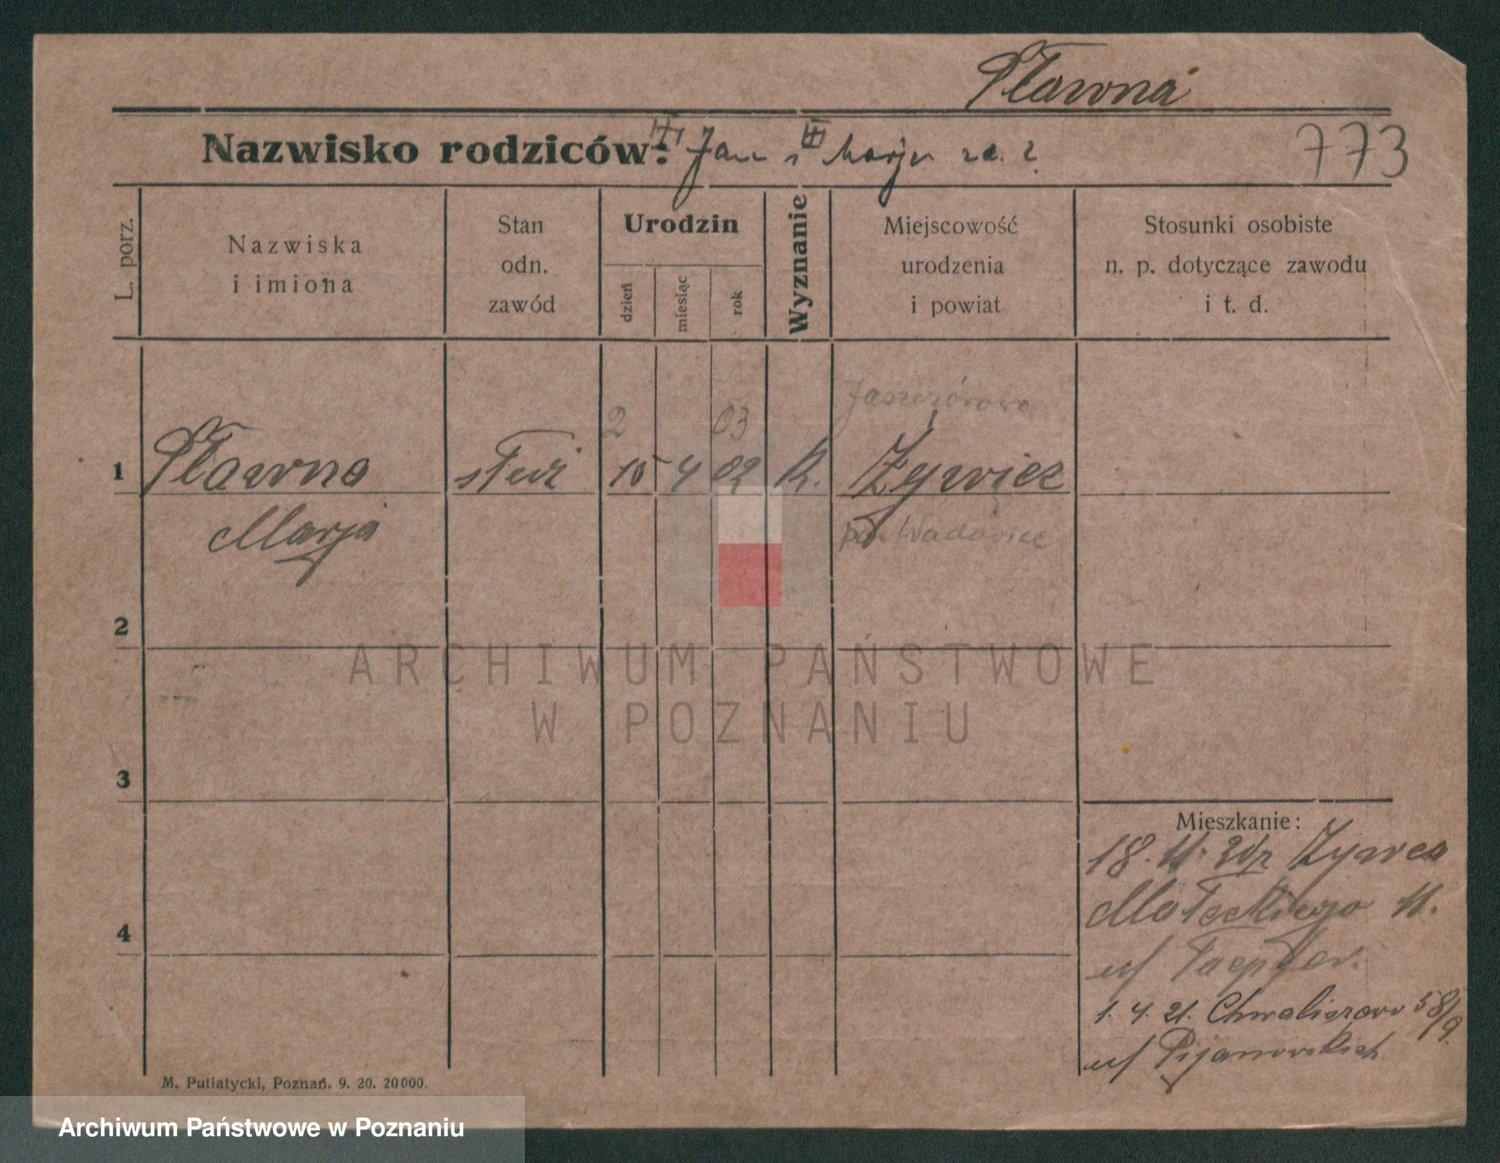 Pławna
Nazwisko rodziców: Jan i Marja
773
L. porz.
Nazwiska
i imiona
Stan
odn.
zawód
Urodzin
dzień
miesiąc
rok
Wyznanie
Miejscowość
urodzenia
i powiat
Stosunki osobiste
n. p. dotyczące zawodu
i t. d.
2 03
1 Pławna 15 4 02 k. Żywiec
Marja pow. Wadowice
2
3
4
Mieszkanie:
18. 11. 20 z Żywca
Małeckiego 11.
u/
1. 4. 21. Chwaliszewo 58/9.
u/ Pijanowskich
M. Putiatycki, Poznań. 9. 20. 20000.
ARCHIWUM PAŃSTWOWE
W POZNANIU
Archiwum Państwowe w Poznaniu